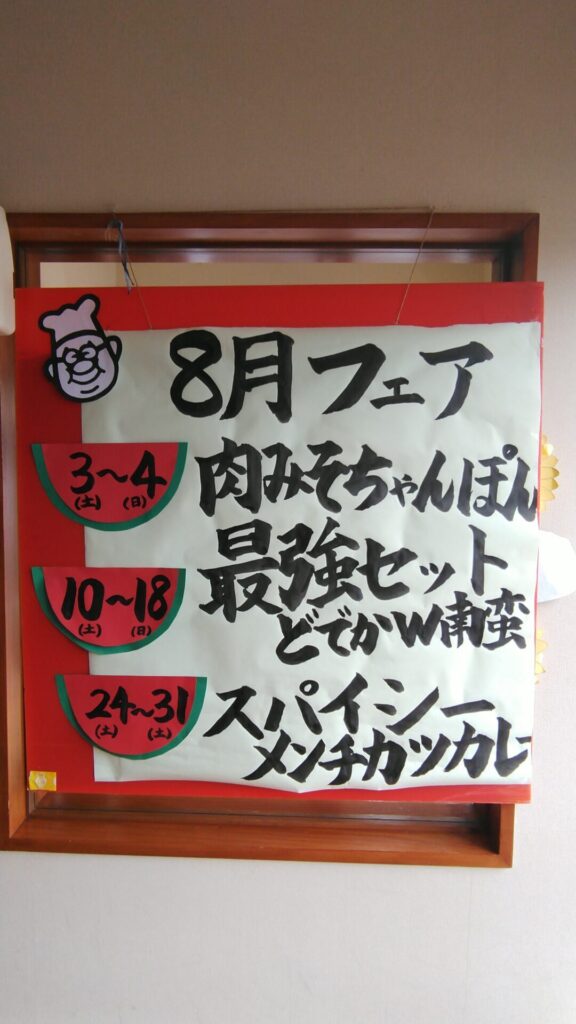 8月フェア
3～4
(土) (日)
肉みそちゃんぽん
10～18
(土) (日)
最強セット
どでかW南蛮
24～31
(土) (土)
スパイシー
メンチカツカレー